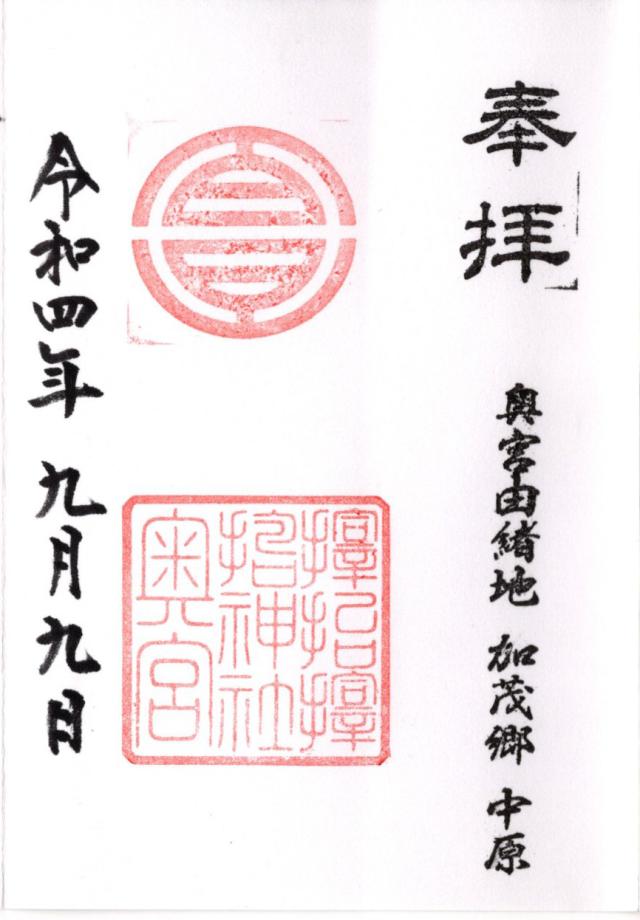 奉拝
奥宮由緒地 加茂郷 中原
神社
奥宮
令和四年 九月九日